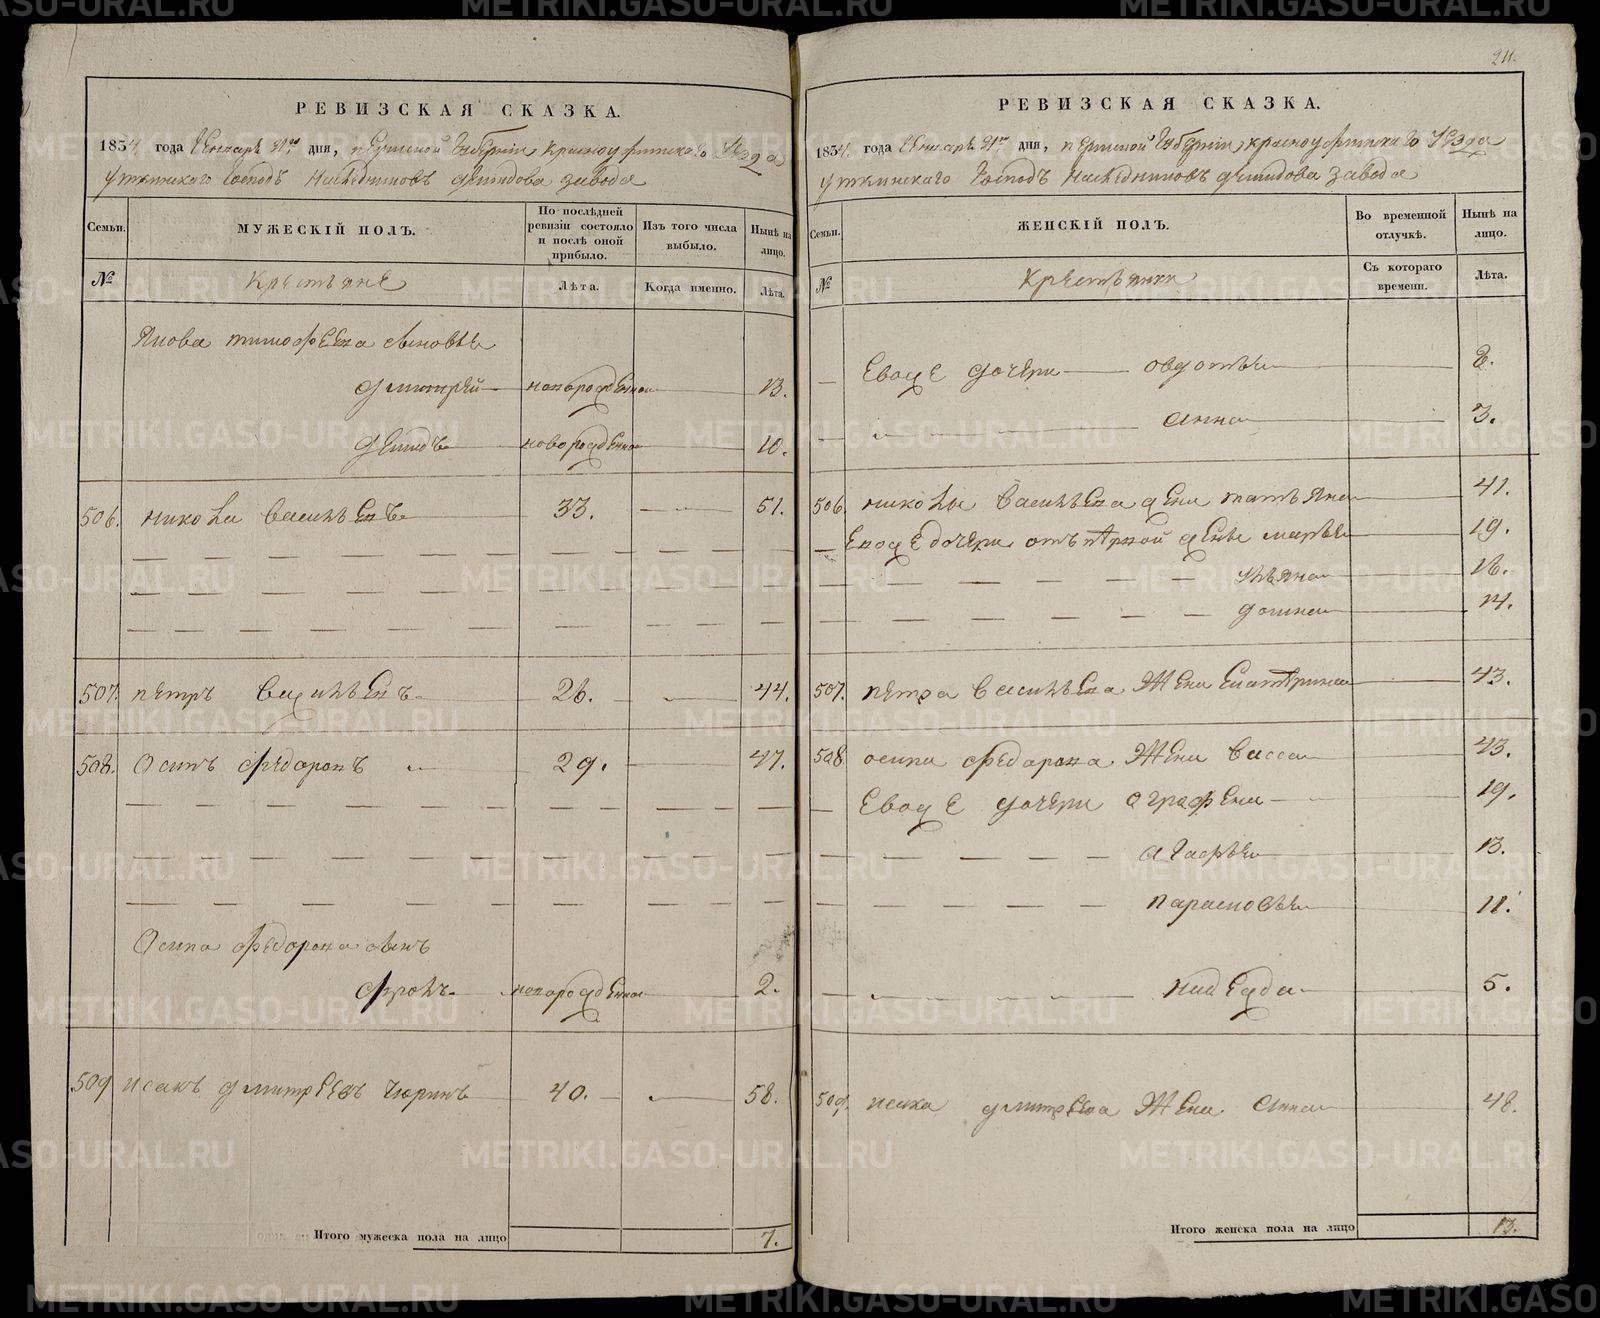 24.
РЕВИЗСКАЯ СКАЗКА.
1834 года Генваря 31го дня, Пермской Губернии, Красноуфимскаго Уезда
Уткинскаго Господъ Наследниковъ Демидова завода
Семьи.
МУЖЕСКІЙ ПОЛЪ.
По послѣдней ревизіи состояло и послѣ оной прибыло.
Изъ того числа выбыло.
Нынѣ на лицо.
№
Крестьяне
Лѣта.
Когда именно.
Лѣта.
Якова Тимофеева сыновьѣ
Дмитрей новорожденной 13.
Демидъ новорожденной 10.
506. Никола Васильевъ 33. 51.
507. Петръ Васильевъ 26. 44.
508. Осипъ Федоровъ 29. 47.
Осипа Федорова сынъ
Фролъ новорожденной 2.
509 Исакъ Дмитревъ Чюринъ 40. 58.
Итого мужеска пола на лицо 7.
РЕВИЗСКАЯ СКАЗКА.
1834. года Генваря 31го дня, Пермской Губернии, Красноуфимскаго Уезда
Уткинскаго Господъ Наследниковъ Демидова завода
Семьи.
ЖЕНСКІЙ ПОЛЪ.
Во временной отлучкѣ.
Нынѣ на лицо.
№
Крестьянки
Съ котораго времени.
Лѣта.
Евоже дочери Овдотья 8.
Анна 3.
506. Николы Васильева жена Татьяна 41.
Евоже дочери отъ первой жены Марья 19.
Ульяна 16.
Домна 14.
507. Петра Васильева Жена Екатерина 43.
508 Осипа Федорова Жена Васса 43.
Евоже дочери Аграфена 19.
Агафья 13.
Парасковья 11.
Надежда 5.
509. Исака Дмитрева Жена Анна 48.
Итого женска пола на лицо 13.
METRIKI.GASO-URAL.RU